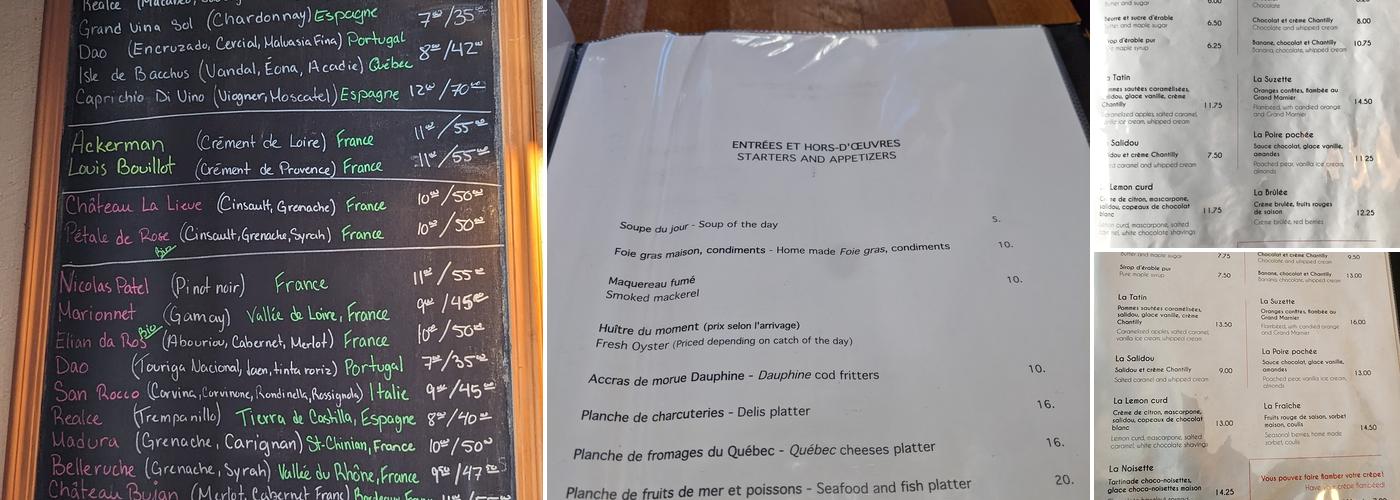 Realce
Grand Vina Sol (Chardonnay) Espagne 7⁰⁰/35⁰⁰
Dao (Encruzado, Cercial, Malvasia Fina) Portugal
Isle de Bacchus (Vandal, Éona, Acadie) Québec 8⁰⁰/42⁰⁰
Caprichio Di Vino (Viogner, Moscatel) Espagne 12⁰⁰/70⁰⁰
Ackerman (Crément de Loire) France 11⁰⁰/55⁰⁰
Louis Bouillot (Crément de Provence) France 11⁰⁰/55⁰⁰
Château La Lieue (Cinsault, Grenache) France 10⁰⁰/50⁰⁰
Pétale de Rose (Cinsault, Grenache, Syrah) France 10⁰⁰/50⁰⁰
Bio
Nicolas Patel (Pinot noir) France 11⁰⁰/55⁰⁰
Marionnet (Gamay) Vallée de Loire, France 9⁰⁰/45⁰⁰
Elian da Ros Bio (Abouriou, Cabernet, Merlot) France 10⁰⁰/50⁰⁰
Dao (Touriga Nacional, Jaen, tinta roriz) Portugal 7⁰⁰/35⁰⁰
San Rocco (Corvina, Corvinone, Rondinella, Rossignola) Italie 9⁰⁰/45⁰⁰
Realce (Trempanillo) Tierra de Castilla, Espagne 8⁰⁰/40⁰⁰
Madura (Grenache, Carignan) St-Chinian, France 10⁰⁰/50⁰⁰
Belleruche (Grenache, Syrah) Vallée du Rhône, France 9⁵⁰/47⁰⁰
Château Bujan (Merlot, Cabernet Franc)
ENTRÉES ET HORS-D'ŒUVRES
STARTERS AND APPETIZERS
Soupe du jour - Soup of the day 5.
Foie gras maison, condiments - Home made Foie gras, condiments 10.
Maquereau fumé 10.
Smoked mackerel
Huître du moment (prix selon l'arrivage)
Fresh Oyster (Priced depending on catch of the day)
Accras de morue Dauphine - Dauphine cod fritters 10.
Planche de charcuteries - Delis platter 16.
Planche de fromages du Québec - Québec cheeses platter 16.
Planche de fruits de mer et poissons - Seafood and fish platter 20.
butter and sugar 6.00
beurre et sucre d'érable 6.50
and maple sugar
sirop d'érable pur 6.25
maple syrup
Tatin
Pommes sautées caramélisées,
salidou, glace vanille, crème
Chantilly 11.75
Caramelized apples, salted caramel,
vanilla ice cream, whipped cream
Salidou
Salidou et crème Chantilly 7.50
caramel and whipped cream
Lemon curd
Crème de citron, mascarpone,
salidou, copeaux de chocolat
blanc 11.75
Lemon curd, mascarpone, salted
caramel, white chocolate shavings
Chocolate
Chocolat et crème Chantilly 8.00
Chocolate and whipped cream
Banane, chocolat et Chantilly 10.75
Banana, chocolate, whipped cream
La Suzette
Oranges confites, flambée au
Grand Marnier 14.50
Flambéed, with candied orange
and Grand Marnier
La Poire pochée
Sauce chocolat, glace vanille,
amandes 11.25
Poached pear, vanilla ice cream,
almonds
La Brûlée
Crème brulée, fruits rouges
de saison 12.25
Crème brulée, red berries
Butter and maple sugar 7.75
Sirop d'érable pur
Pure maple syrup 7.50
La Tatin
Pommes sautées caramélisées,
salidou, glace vanille, crème
Chantilly 13.50
Caramelized apples, salted caramel,
vanilla ice cream, whipped cream
La Salidou
Salidou et crème Chantilly 9.00
Salted caramel and whipped cream
La Lemon curd
Crème de citron, mascarpone,
salidou, copeaux de chocolat
blanc 13.00
Lemon curd, mascarpone, salted
caramel, white chocolate shavings
La Noisette
Tartinade choco-noisettes,
glace choco-noisettes maison 14.25
Chocolat et crème Chantilly 9.50
Chocolate and whipped cream
Banane, chocolat et Chantilly 13.00
Banana, chocolate, whipped cream
La Suzette
Oranges confites, flambée au
Grand Marnier 16.00
Flambéed, with candied orange
and Grand Marnier
La Poire pochée
Sauce chocolat, glace vanille,
amandes 13.00
Poached pear, vanilla ice cream,
almonds
La Fraîche
Fruits rouge de saison, sorbet
maison, coulis 14.50
Seasonal berries, home made
sorbet, coulis
Vous pouvez faire flamber votre crêpe!
Have your crêpe flambéed!